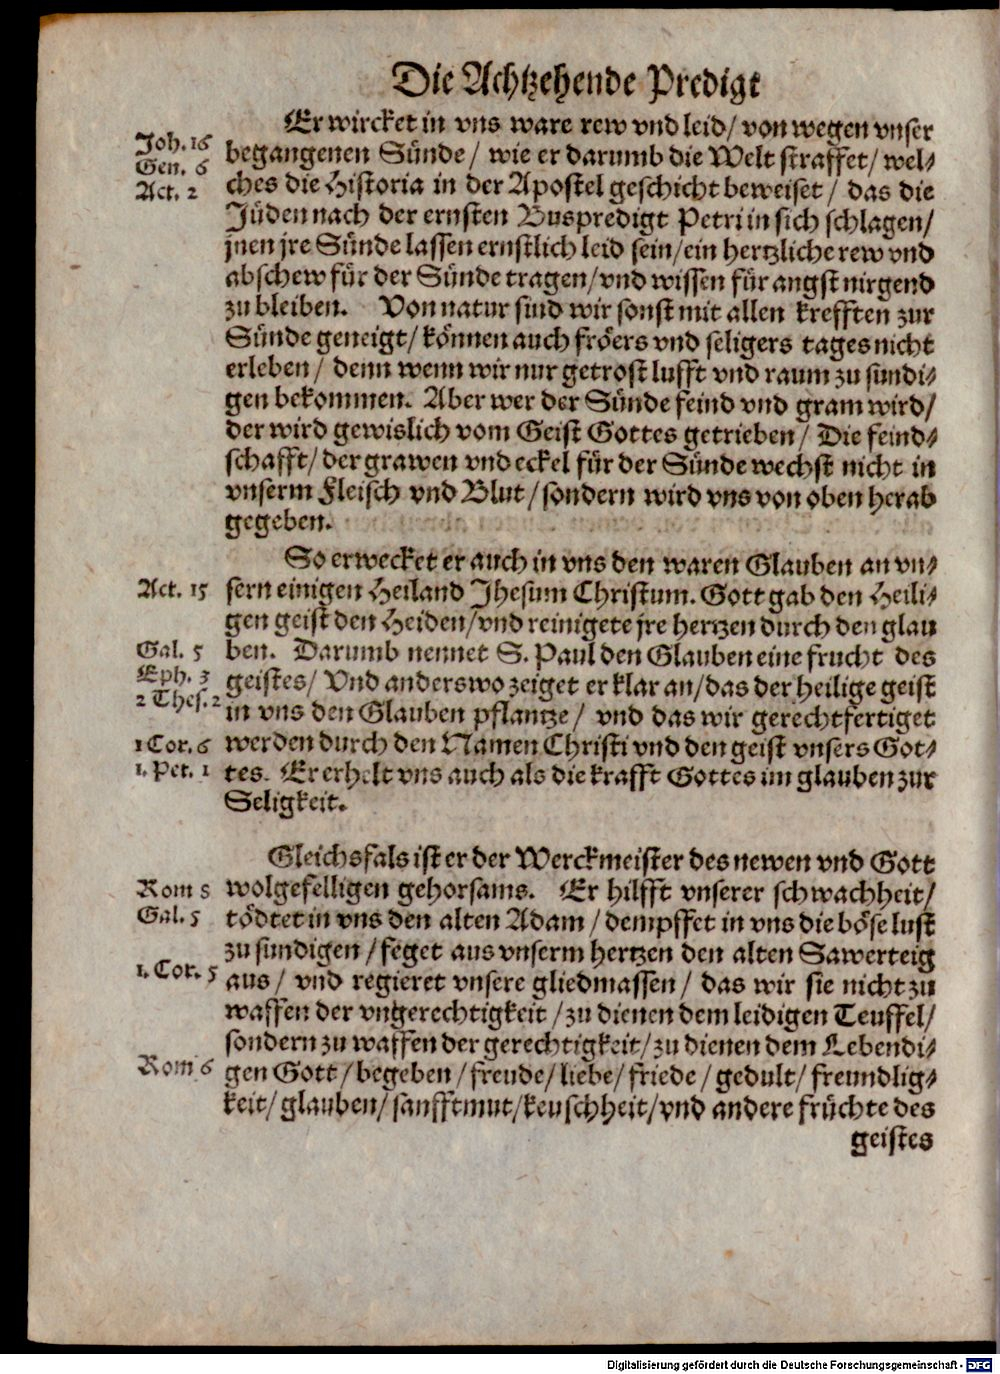 Die Achtzehende Predigt
Er wircket in vns ware rew vnd leid/ von wegen vnser
Joh. 16
begangenen Sünde/ wie er darumb die Welt straffet/ wel⸗
Gen. 6
ches die Historia in der Apostel geschicht beweiset/ das die
Act. 2
Jüden nach der ernsten Buspredigt Petri in sich schlagen/
jnen jre Sünde lassen ernstlich leid sein/ ein hertzliche rew vnd
abschew für der Sünde tragen/ vnd wissen für angst nirgend
zu bleiben. Von natur sind wir sonst mit allen krefften zur
Sünde geneigt/ können auch fröers vnd seligers tages nicht
erleben/ denn wenn wir nur getrost lufft vnd raum zu sundi⸗
gen bekommen. Aber wer der Sünde feind vnd gram wird/
der wird gewislich vom Geist Gottes getrieben/ Die feind⸗
schafft/ der grawen vnd eckel für der Sünde wechst nicht in
vnserm Fleisch vnd Blut/ sondern wird vns von oben herab
gegeben.
So erwecket er auch in vns den waren Glauben an vn⸗
Act. 15
sern einigen Heiland Jhesum Christum. Gott gab den Heili⸗
gen geist den Heiden/ vnd reinigete jre hertzen durch den glau
Gal. 5
ben. Darumb nennet S. Paul den Glauben eine frucht des
Eph. 3
geistes/ Vnd anderswo zeiget er klar an/ das der heilige geist
2 Thes. 2
in vns den Glauben pflantze/ vnd das wir gerechtfertiget
1 Cor. 6
werden durch den Namen Christi vnd den geist vnsers Got⸗
1. Pet. 1
tes. Er erhelt vns auch als die krafft Gottes im glauben zur
Seligkeit.
Gleichsfals ist er der Werckmeister des newen vnd Gott
Rom 8
wolgefelligen gehorsams. Er hilfft vnserer schwachheit/
Gal. 5
tödtet in vns den alten Adam/ dempffet in vns die böse lust
zu sundigen/ feget aus vnserm hertzen den alten Sawerteig
1. Cor. 5
aus/ vnd regieret vnsere gliedmassen/ das wir sie nicht zu
waffen der vngerechtigkeit/ zu dienen dem leidigen Teuffel/
sondern zu waffen der gerechtigkeit/ zu dienen dem Lebendi⸗
Rom 6
gen Gott/ begeben/ freude/ liebe/ friede/ gedult/ freundlig⸗
keit/ glauben/ sanfftmut/ keuschheit/ vnd andere früchte des
geistes
Digitalisierung gefördert durch die Deutsche Forschungsgemeinschaft - DFG